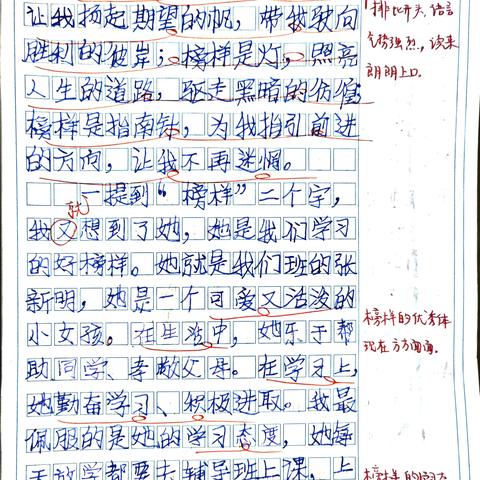 让我扬起期望的帆，带我驶向
胜利的彼岸；榜样是灯，照亮
人生的道路，驱走黑暗的
榜样是指南针，为我指引前进
的方向，让我不再迷惘。
一提到“榜样”二个字，
就
我又想到了她，她是我们学习
的好榜样。她就是我们班的张
新明，她是一个可爱又活泼的
小女孩。在生活中，她乐于帮
助同学、孝敬父母。在学习上，
她勤奋学习、积极进取。我最
佩服的是她的学习态度，她每
天放学都要去辅导班上课，上
排比开头，语言
气势强烈，读来
朗朗上口。
榜样的优秀体
现在方方面面。
榜样的